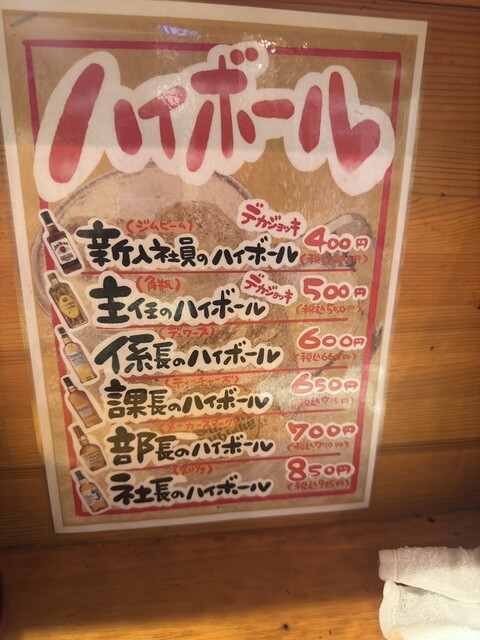 ハイボール
(ジムビーム)
新入社員のハイボール
デカジョッキ
400円
(角瓶)
主任のハイボール
デカジョッキ
500円
(税込550円)
(デュワーズ)
係長のハイボール
600円
(税込660円)
(ティーチャーズ)
課長のハイボール
650円
(税込715円)
(メーカーズマーク)
部長のハイボール
700円
(税込770円)
(知多)
社長のハイボール
850円
(税込935円)